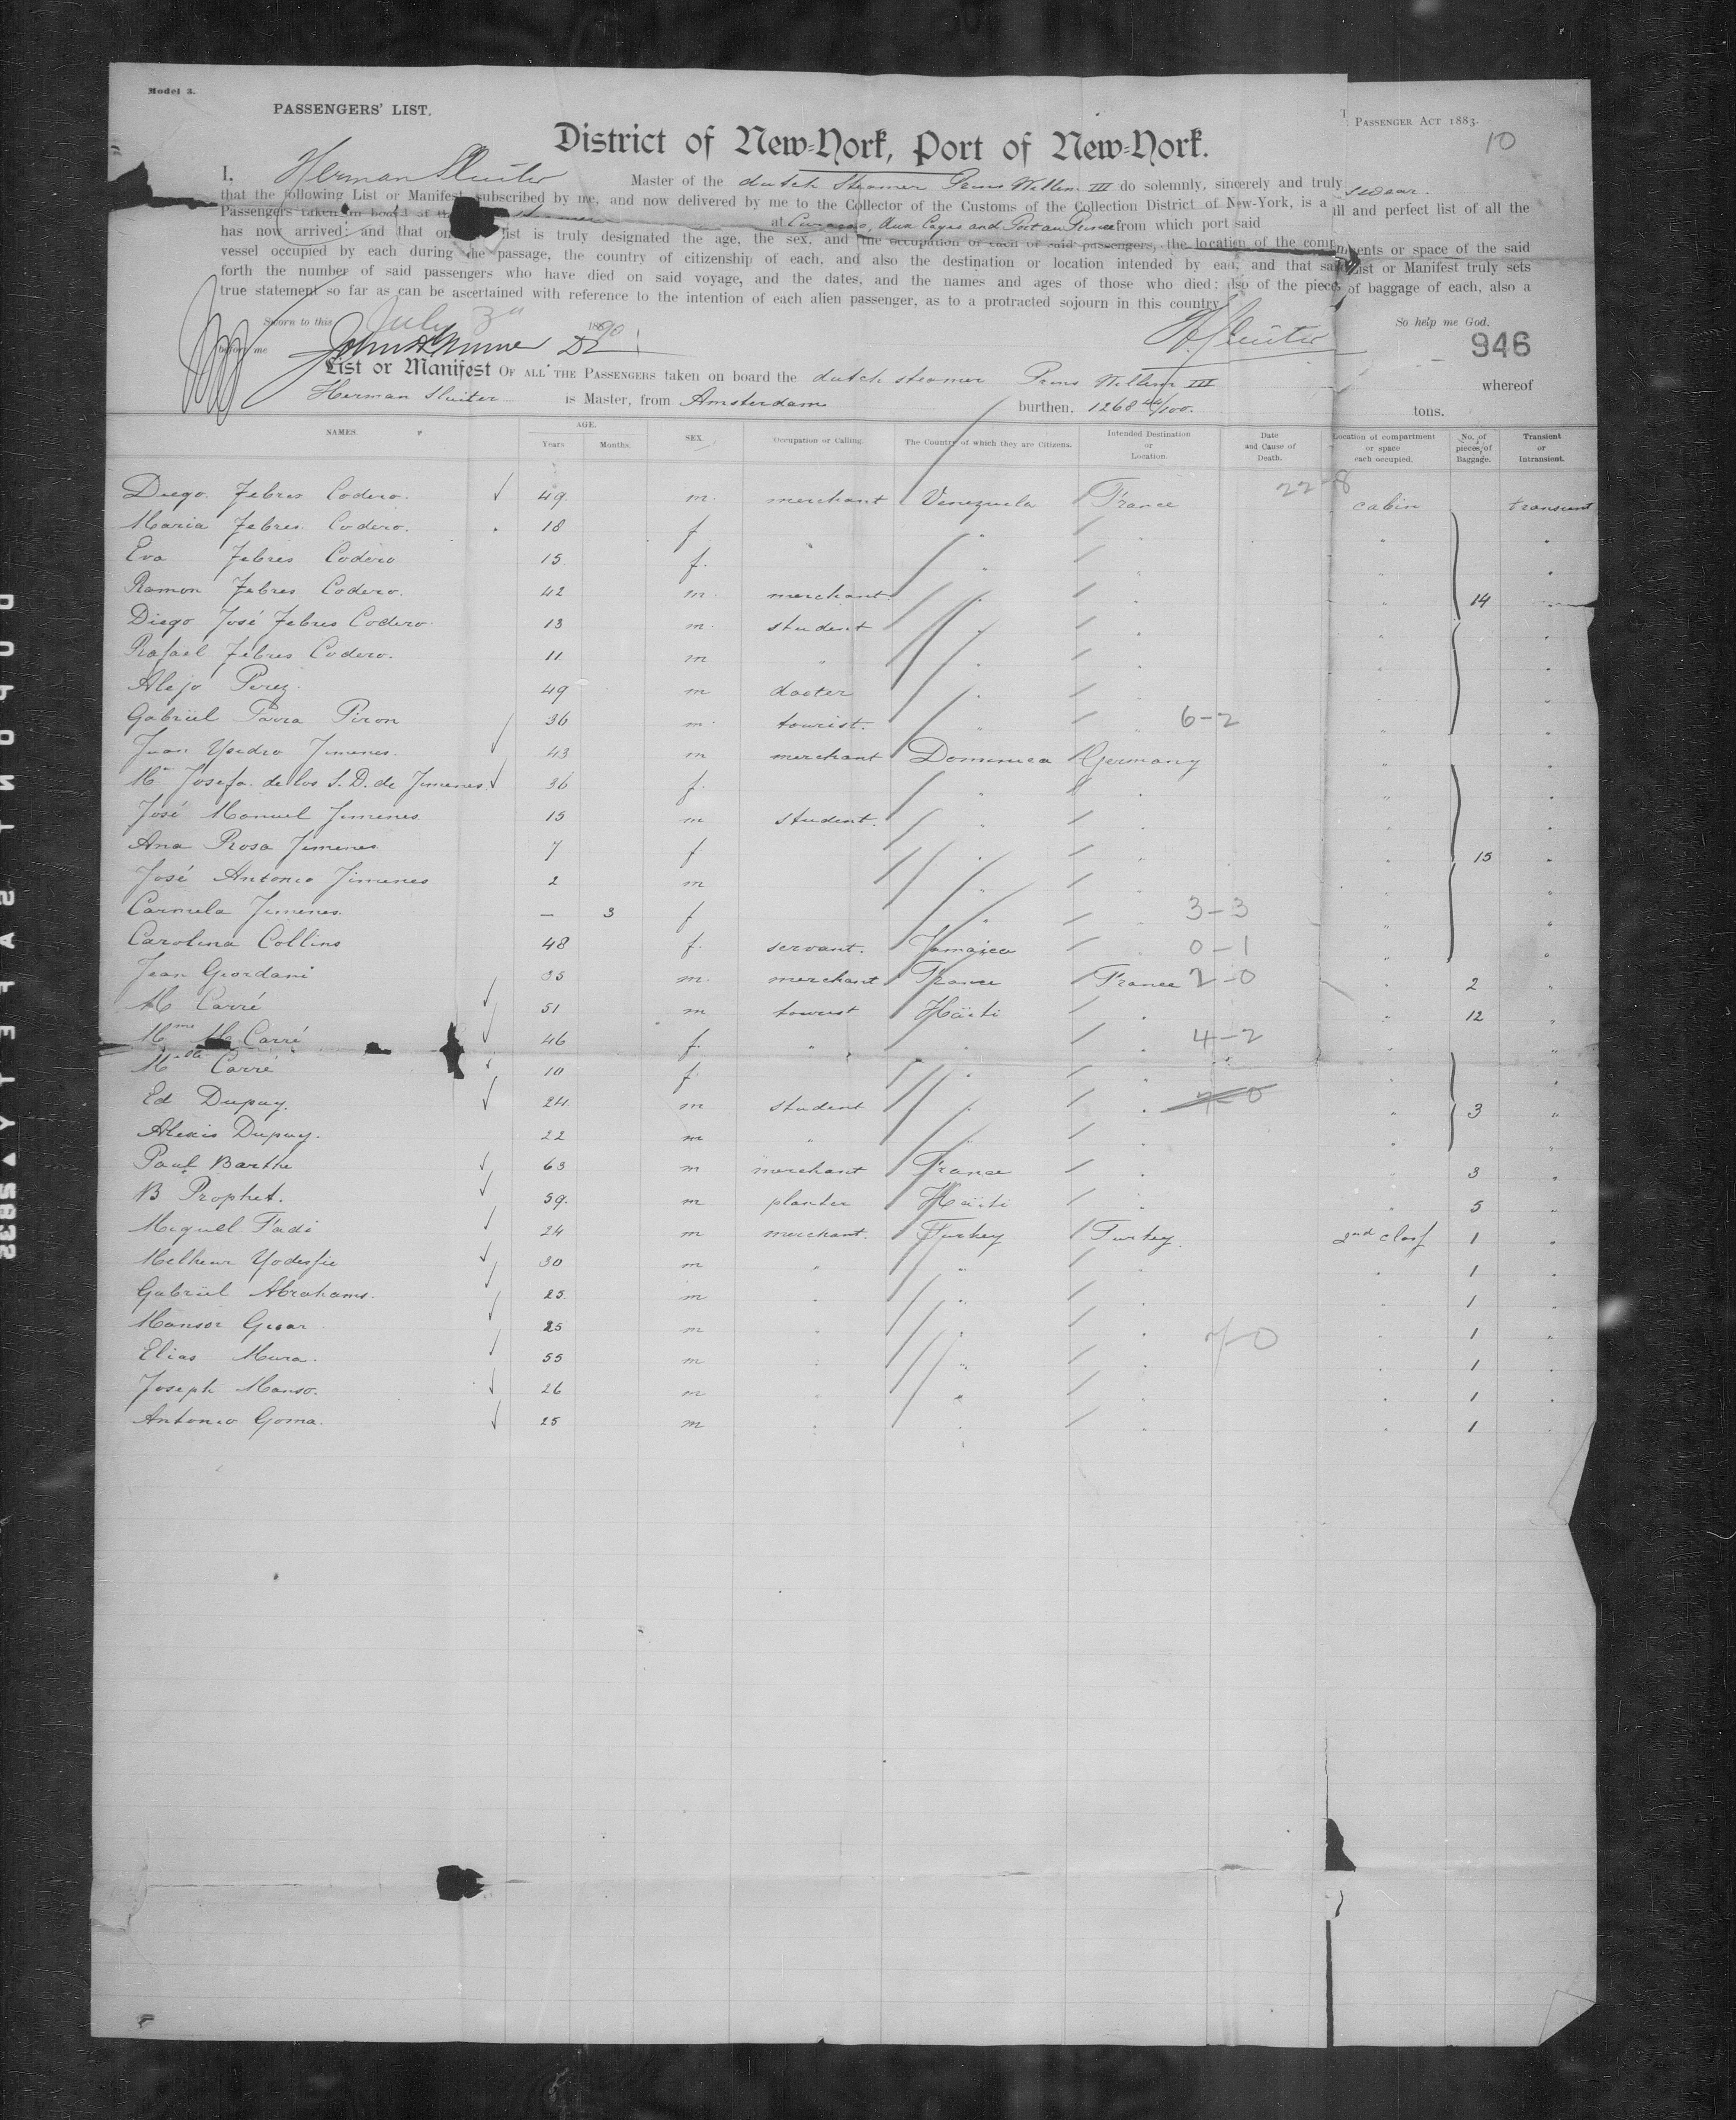 Model 3.
PASSENGERS' LIST.
PASSENGER ACT 1883.
10
District of New-York, Port of New-York.
I, Herman Sluiter Master of the dutch Steamer Prins Willem III do solemnly, sincerely and truly swear
that the following List or Manifest subscribed by me, and now delivered by me to the Collector of the Customs of the Collection District of New-York, is a full and perfect list of all the
Passengers taken on board of the steamer at Curacao, Aux Cayes and Port au Prince from which port said
has now arrived; and that on list is truly designated the age, the sex, and the occupation of each of said passengers, the location of the compartments or space of the said
vessel occupied by each during the passage, the country of citizenship of each, and also the destination or location intended by each, and that said List or Manifest truly sets
forth the number of said passengers who have died on said voyage, and the dates, and the names and ages of those who died; also of the pieces of baggage of each, also a
true statement so far as can be ascertained with reference to the intention of each alien passenger, as to a protracted sojourn in this country.
Sworn to this July 3 1890 So help me God.
before me H Sluiter 946
List or Manifest OF ALL THE PASSENGERS taken on board the dutch steamer Prins Willem III whereof
Herman Sluiter is Master, from Amsterdam burthen, 1268 /100. tons.
NAMES. AGE. Years Months. SEX. Occupation or Calling. The Country of which they are Citizens. Intended Destination or Location. Date and Cause of Death. Location of compartment or space each occupied. No. of pieces of Baggage. Transient or Intransient.
22-8
Diego Febres Codero. 49 m. merchant Venezuela France cabin transient
Maria Febres Codero. 18 f " " "
Eva Febres Codero 15 f. " " "
Ramon Febres Codero. 42 m. merchant " " " 14
Diego José Febres Codero. 13 m. student " " " "
Rafael Febres Codero. 11 m " " " " "
Alejo Perez. 49 m docter " " " "
Gabriel Parra Piron 36 m. tourist. " " 6-2 " "
Juan Ysidro Jimenes. 43 m merchant Dominica Germany " "
Ma Josefa de los S. D. de Jimenes. 36 f. " " " "
José Manuel Jimenes. 15 m student. " " " "
Ana Rosa Jimenes 7 f " " " 15 "
José Antonio Jimenes 2 m " " " "
Carmela Jimenes. — 3 f " " 3-3 " "
Carolina Collins 48 f. servant. Jamaica " 0-1 " "
Jean Giordani 35 m. merchant France France 2-0 " 2 "
M Carré 51 m tourist Haïti " " 12 "
Mme M. Carré 46 f. " " " 4-2 " "
Melle Carré 10 f " " "
Ed Dupuy. 24 m student " " " 3 "
Alexis Dupuy. 22 m " " " "
Paul Barthe 63 m merchant France " " 3 "
B Prophet. 59. m planter Haïti " " 5 "
Miguel Fadi 24 m merchant. Turkey Turkey. 2nd class 1 "
Melheur 30 m " " " " 1 "
Gabriel Abrahams. 25. m " " " " 1 "
Mansor 25 m " " " 7-0 " 1 "
Elias Mura. 55 m " " " " 1 "
Joseph Manso. 26 m " " " " 1 "
Antonio Goma. 25 m " " " " 1 "